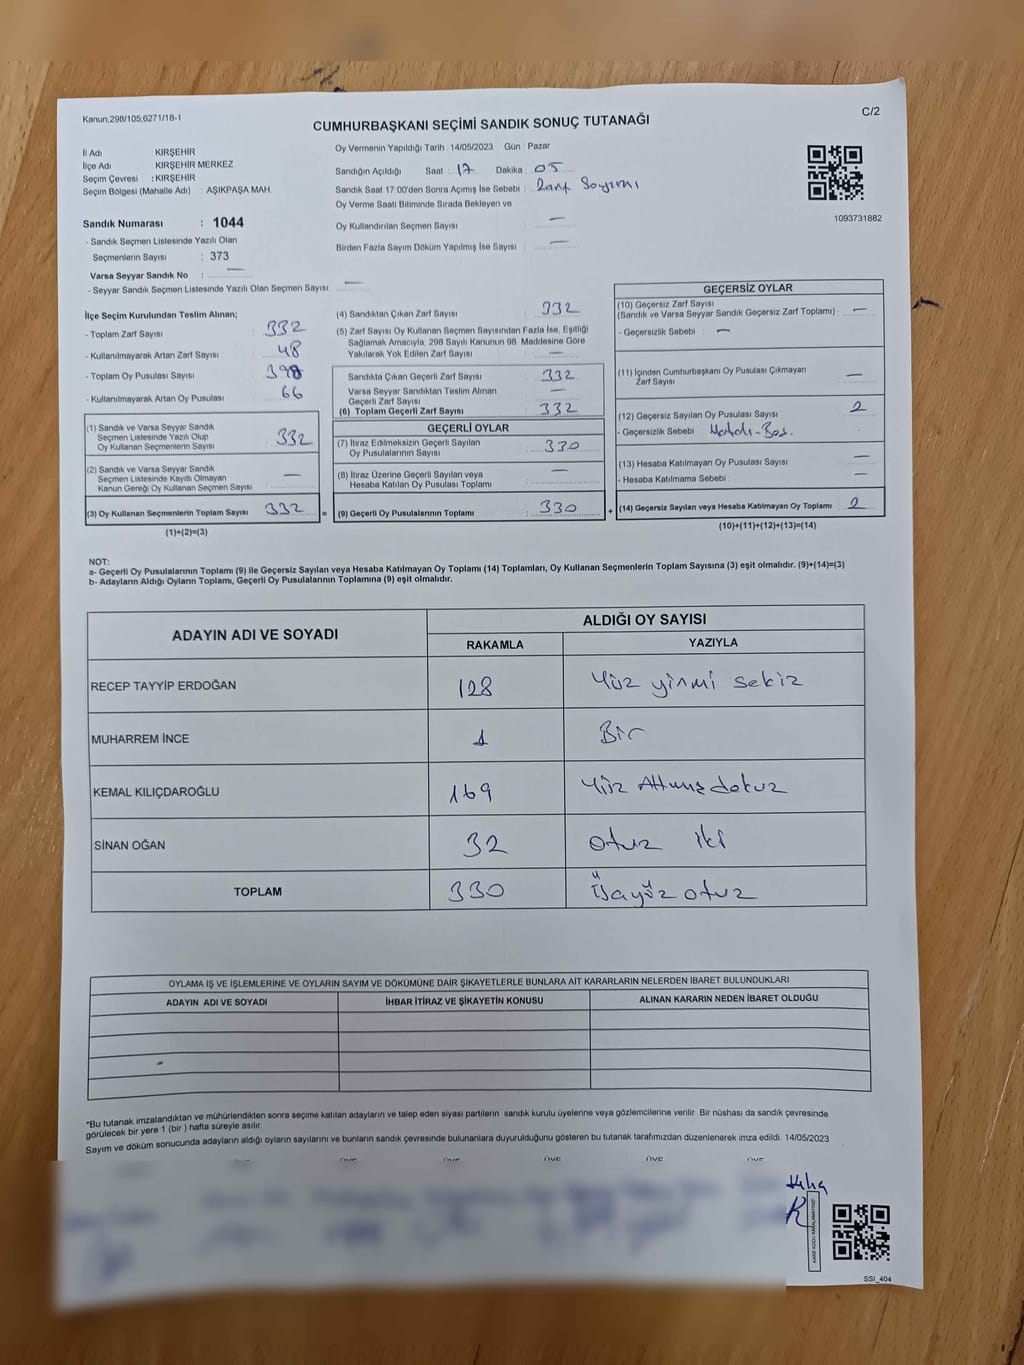 Kanun;298/105;6271/18-1
C/2
CUMHURBAŞKANI SEÇİMİ SANDIK SONUÇ TUTANAĞI
İl Adı KIRŞEHİR
İlçe Adı KIRŞEHİR MERKEZ
Seçim Çevresi : KIRŞEHİR
Seçim Bölgesi (Mahalle Adı) : AŞIKPAŞA MAH.
Oy Vermenin Yapıldığı Tarih : 14/05/2023 Gün : Pazar
Sandığın Açıldığı Saat : 17 Dakika : 05
Sandık Saat 17:00'den Sonra Açılmış İse Sebebi : Zarf Sayımı
Oy Verme Saati Bitiminde Sırada Bekleyen ve
Oy Kullandırılan Seçmen Sayısı : —
Birden Fazla Sayım Döküm Yapılmış İse Sayısı : —
1093731882
Sandık Numarası : 1044
- Sandık Seçmen Listesinde Yazılı Olan
Seçmenlerin Sayısı : 373
Varsa Seyyar Sandık No : —
- Seyyar Sandık Seçmen Listesinde Yazılı Olan Seçmen Sayısı : —
İlçe Seçim Kurulundan Teslim Alınan;
- Toplam Zarf Sayısı 332
- Kullanılmayarak Artan Zarf Sayısı 48
- Toplam Oy Pusulası Sayısı 398
- Kullanılmayarak Artan Oy Pusulası 66
(1) Sandık ve Varsa Seyyar Sandık
Seçmen Listesinde Yazılı Olup
Oy Kullanan Seçmenlerin Sayısı : 332
(2) Sandık ve Varsa Seyyar Sandık
Seçmen Listesinde Kayıtlı Olmayan
Kanun Gereği Oy Kullanan Seçmen Sayısı —
(3) Oy Kullanan Seçmenlerin Toplam Sayısı 332 =
(1)+(2)=(3)
(4) Sandıktan Çıkan Zarf Sayısı : 332
(5) Zarf Sayısı Oy Kullanan Seçmen Sayısından Fazla İse, Eşitliği
Sağlamak Amacıyla, 298 Sayılı Kanunun 98. Maddesine Göre
Yakılarak Yok Edilen Zarf Sayısı : —
Sandıkta Çıkan Geçerli Zarf Sayısı : 332
Varsa Seyyar Sandıktan Teslim Alınan
Geçerli Zarf Sayısı : —
(6) Toplam Geçerli Zarf Sayısı : 332
GEÇERLİ OYLAR
(7) İtiraz Edilmeksizin Geçerli Sayılan
Oy Pusulalarının Sayısı : 330
(8) İtiraz Üzerine Geçerli Sayılan veya
Hesaba Katılan Oy Pusulası Toplamı : —
(9) Geçerli Oy Pusulalarının Toplamı : 330 +
GEÇERSİZ OYLAR
(10) Geçersiz Zarf Sayısı
(Sandık ve Varsa Seyyar Sandık Geçersiz Zarf Toplamı) : —
- Geçersizlik Sebebi : —
(11) İçinden Cumhurbaşkanı Oy Pusulası Çıkmayan
Zarf Sayısı : —
(12) Geçersiz Sayılan Oy Pusulası Sayısı : 2
- Geçersizlik Sebebi : Hatalı-Boş.
(13) Hesaba Katılmayan Oy Pusulası Sayısı : —
- Hesaba Katılmama Sebebi : —
(14) Geçersiz Sayılan veya Hesaba Katılmayan Oy Toplamı : 2
(10)+(11)+(12)+(13)=(14)
NOT:
a- Geçerli Oy Pusulalarının Toplamı (9) ile Geçersiz Sayılan veya Hesaba Katılmayan Oy Toplamı (14) Toplamları, Oy Kullanan Seçmenlerin Toplam Sayısına (3) eşit olmalıdır. (9)+(14)=(3)
b- Adayların Aldığı Oyların Toplamı, Geçerli Oy Pusulalarının Toplamına (9) eşit olmalıdır.
ADAYIN ADI VE SOYADI
ALDIĞI OY SAYISI
RAKAMLA YAZIYLA
RECEP TAYYİP ERDOĞAN 128 Yüz yirmi sekiz
MUHARREM İNCE 1 Bir
KEMAL KILIÇDAROĞLU 169 Yüz Altmış dokuz
SİNAN OĞAN 32 otuz iki
TOPLAM 330 üçyüz otuz
OYLAMA İŞ VE İŞLEMLERİNE VE OYLARIN SAYIM VE DÖKÜMÜNE DAİR ŞİKAYETLERLE BUNLARA AİT KARARLARIN NELERDEN İBARET BULUNDUKLARI
ADAYIN ADI VE SOYADI İHBAR İTİRAZ VE ŞİKAYETİN KONUSU ALINAN KARARIN NEDEN İBARET OLDUĞU
*Bu tutanak imzalandıktan ve mühürlendikten sonra seçime katılan adayların ve talep eden siyasi partilerin sandık kurulu üyelerine veya gözlemcilerine verilir. Bir nüshası da sandık çevresinde
görülecek bir yere 1 (bir) hafta süreyle asılır.
Sayım ve döküm sonucunda adayların aldığı oyların sayılarını ve bunların sandık çevresinde bulunanlara duyurulduğunu gösteren bu tutanak tarafımızdan düzenlenerek imza edildi. 14/05/2023
SSI_404